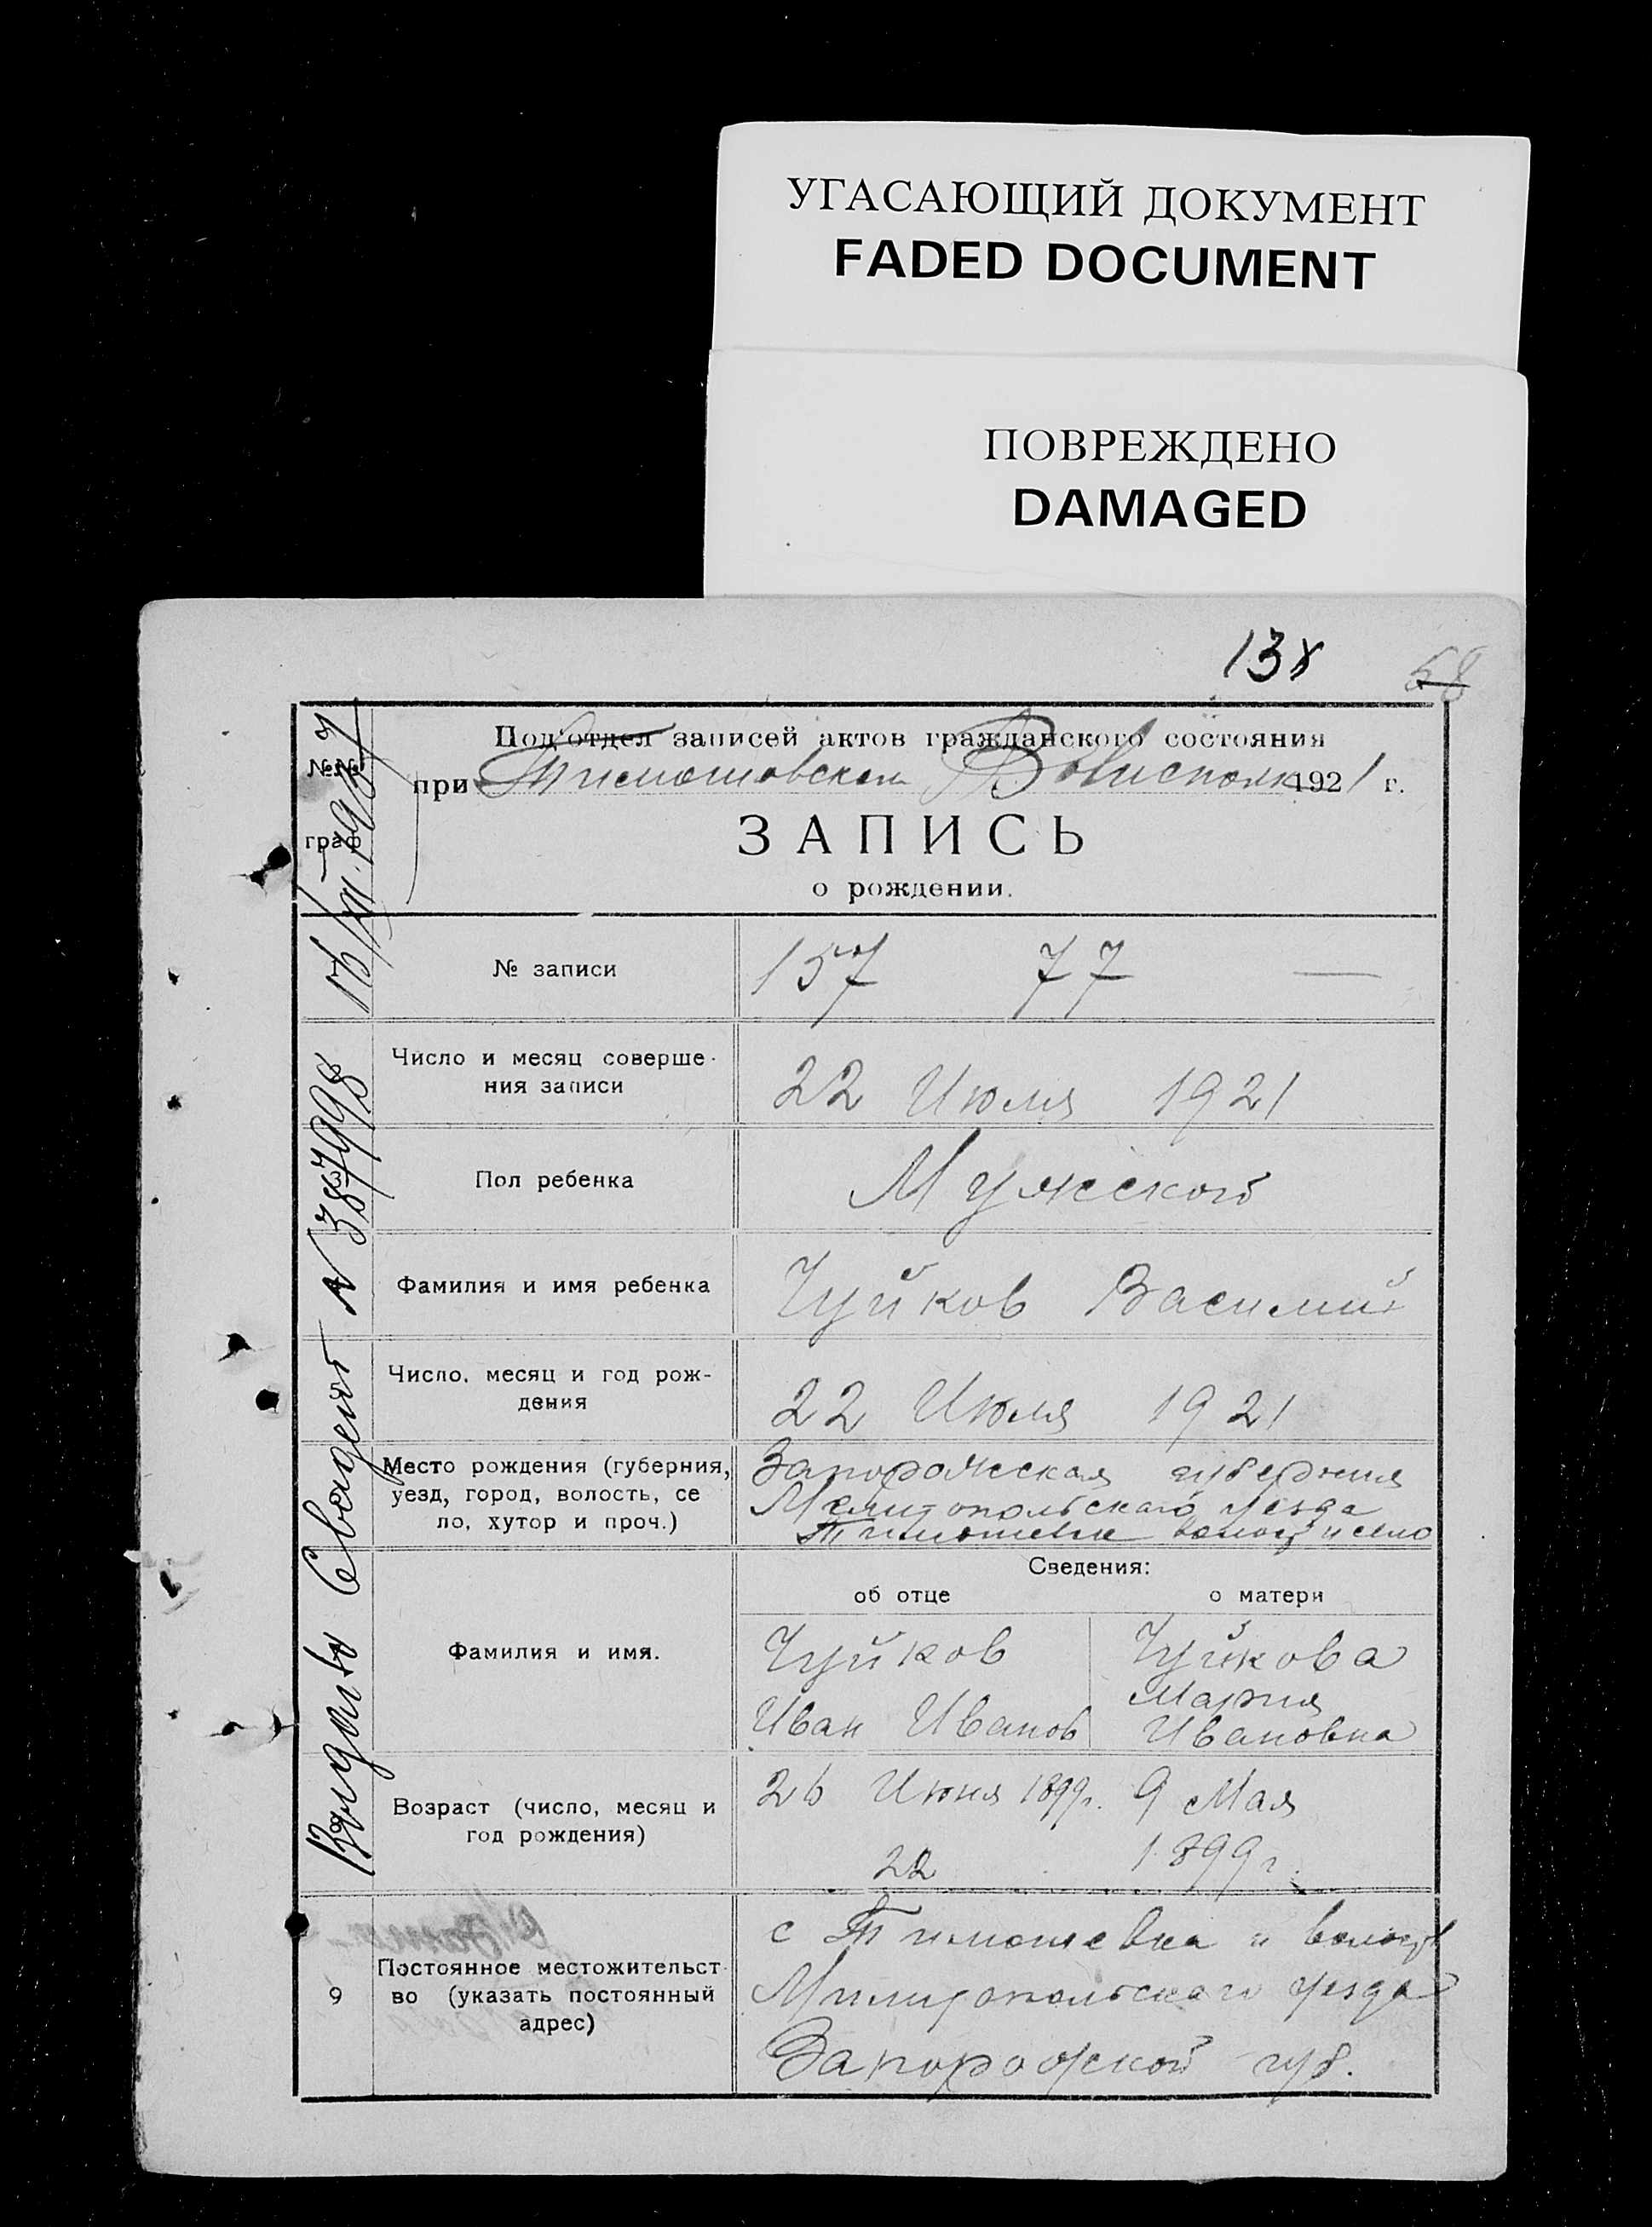 УГАСАЮЩИЙ ДОКУМЕНТ
FADED DOCUMENT
ПОВРЕЖДЕНО
DAMAGED
138 58
Под'отдел записей актов гражданского состояния
при Тимошовском Волисполк 1921 г.
№№
граф
ЗАПИСЬ
о рождении.
№ записи
157 77 —
Число и месяц соверше-
ния записи
22 Июля 1921
Пол ребенка
Мужеской
Фамилия и имя ребенка
Чуйков Василий
Число, месяц и год рож-
дения
22 Июля 1921
Место рождения (губерния,
уезд, город, волость, се
ло, хутор и проч.)
Запорожская губерния
Мелитопольскаго уезда
Тимошевк волост и село
Сведения:
об отце о матери
Фамилия и имя.
Чуйков
Иван Иванов
Чуйкова
Мария
Ивановна
Возраст (число, месяц и
год рождения)
26 Июня 1899г.
22
9 Мая
1899г.
9
Постоянное местожительст-
во (указать постоянный
адрес)
с Тимошевка и волость
Милитопольскаго уезда
Запорожской губ.
Выдано Свидет N 387998